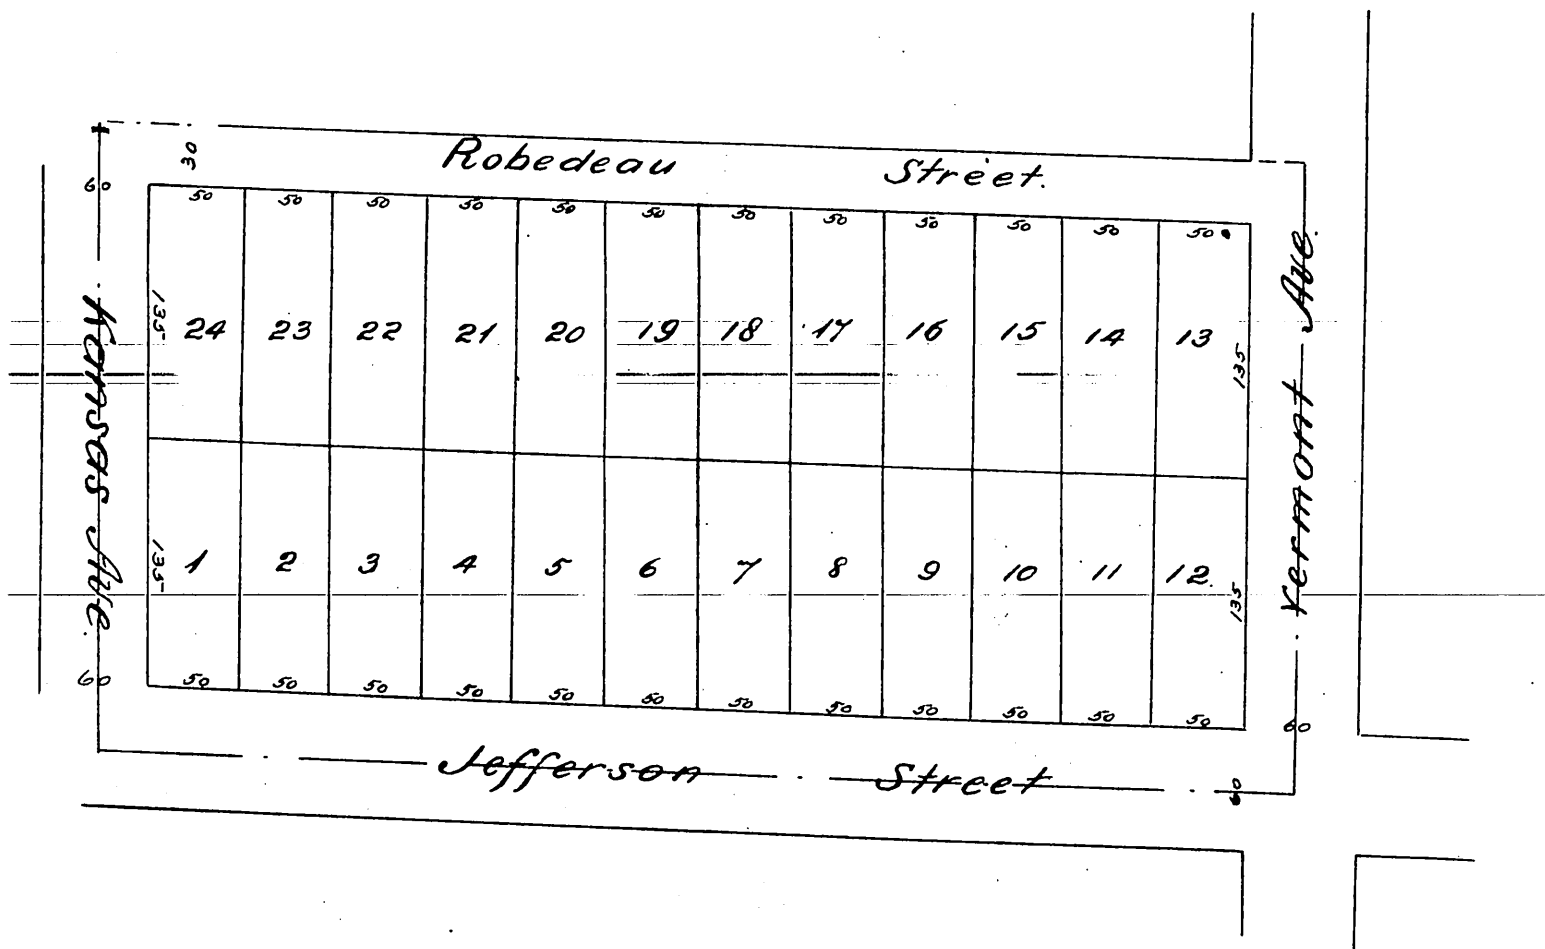 Robedeau Street.
30
60
50 50 50 50 50 50 50 50 50 50 50 50
135 24 23 22 21 20 19 18 17 16 15 14 13 135
Kansas Ave.
Vermont Ave.
135 1 2 3 4 5 6 7 8 9 10 11 12 135
60
50 50 50 50 50 50 50 50 50 50 50 50
60
Jefferson Street
60